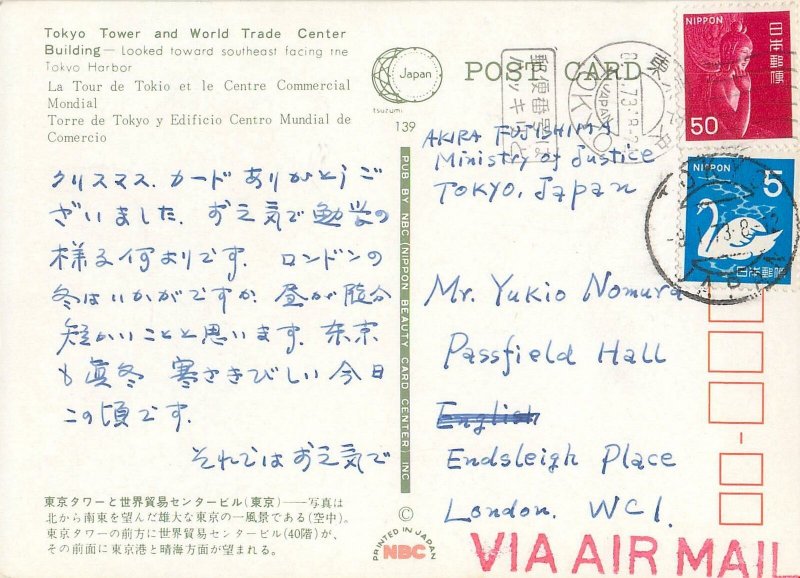 Tokyo Tower and World Trade Center
Building — Looked toward southeast facing the
Tokyo Harbor
La Tour de Tokio et le Centre Commercial
Mondial
Torre de Tokyo y Edificio Centro Mundial de
Comercio
クリスマス.カードありがとうご
ざいました.お元気で勉学の
様子何よりです.ロンドンの
冬はいかがですか.昼が随分
短かいことと思います.東京
も真冬 寒さきびしい今日
この頃です.
それではお元気で
東京タワーと世界貿易センタービル(東京)——写真は
北から南東を望んだ雄大な東京の一風景である(空中)。
東京タワーの前方に世界貿易センタービル(40階)が、
その前面に東京港と晴海方面が望まれる。
Japan
tsuzumi
139
PUB BY NBC (NIPPON BEAUTY CARD CENTER) INC
©
PRINTED IN JAPAN
NBC
POST CARD
郵便番号は
ハッキリと
TOKYO
JAPAN
NIPPON
日本郵便
50
NIPPON
5
日本郵便
JAPAN
AKIRA FUJISHIMA
Ministry of Justice
TOKYO, Japan
Mr. Yukio Nomura
Passfield Hall
English
Endsleigh Place
London. WC1.
VIA AIR MAIL